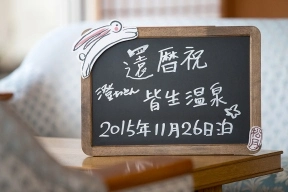 還暦祝
澄ちゃん 皆生温泉
2015年11月26日泊
松月